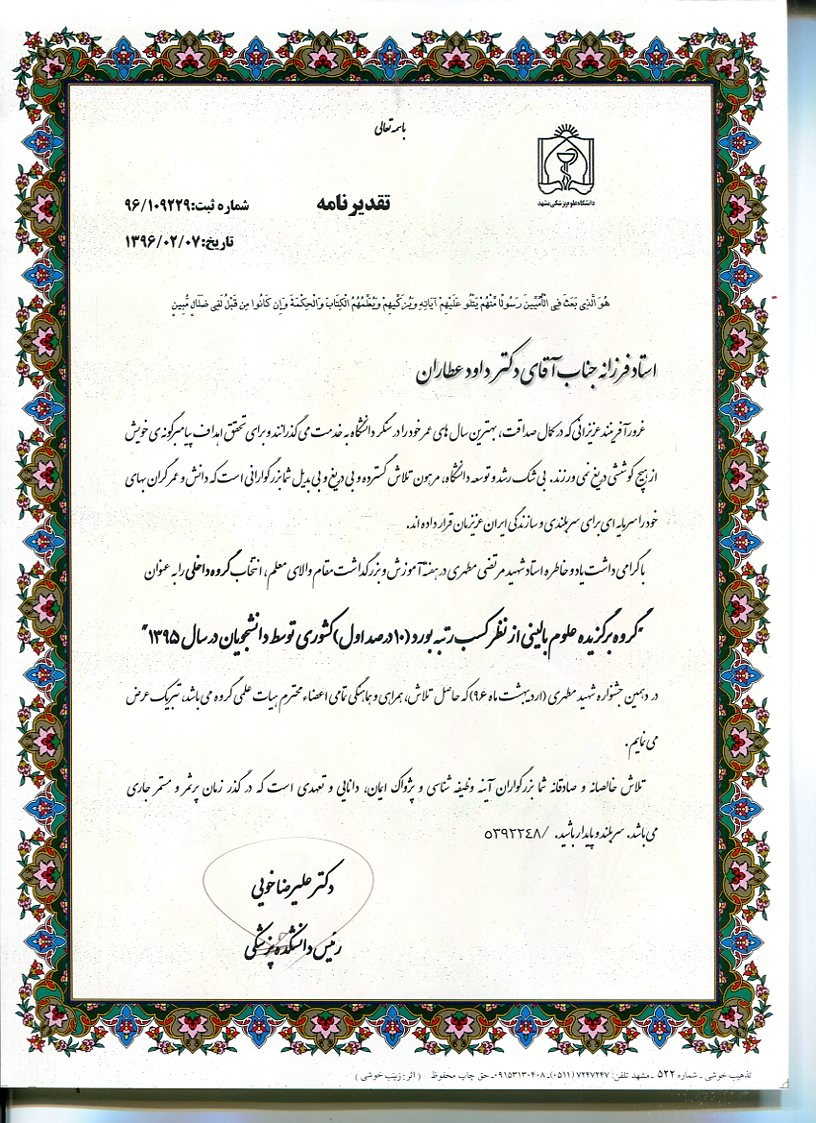 باسمه تعالی
دانشگاه علوم پزشکی مشهد
تقدیرنامه
شماره ثبت:۹۶/۱۰۹۲۲۹
تاریخ:۱۳۹۶/۰۲/۰۷
هُوَ الَّذِی بَعَثَ فِی الْأُمِّیِّینَ رَسُولًا مِّنْهُمْ یَتْلُو عَلَیْهِمْ آیَاتِهِ وَیُزَکِّیهِمْ وَیُعَلِّمُهُمُ الْکِتَابَ وَالْحِکْمَةَ وَإِن کَانُوا مِن قَبْلُ لَفِی ضَلَالٍ مُّبِینٍ
استاد فرزانه جناب آقای دکتر داود عطاران
غرورآفرینند عزیزانی که در کمال صداقت، بهترین سال های عمر خود را در سنگر دانشگاه به خدمت می گذرانند و برای تحقق اهداف پیامبرگونه ی خویش
از هیچ کوششی دریغ نمی ورزند. بی شک رشد و توسعه دانشگاه، مرهون تلاش گسترده و بی دریغ و بی بدیل شما بزرگوارانی است که دانش و عمر گران بهای
خود را سرمایه ای برای سربلندی و سازندگی ایران عزیزمان قرار داده اند.
با گرامی داشت یاد و خاطره استاد شهید مرتضی مطهری در هفته آموزش و بزرگداشت مقام والای معلم، انتخاب گروه داخلی را به عنوان
"گروه برگزیده علوم بالینی از نظر کسب رتبه بورد (۱۰ درصد اول) کشوری توسط دانشجویان در سال ۱۳۹۵"
در دهمین جشنواره شهید مطهری (اردیبهشت ماه ۹۶) که حاصل تلاش، همراهی و هماهنگی تمامی اعضاء محترم هیات علمی گروه می باشد، تبریک عرض
می نمایم.
تلاش خالصانه و صادقانه شما بزرگواران آینه وظیفه شناسی و پژواک ایمان، دانایی و تعهدی است که در گذر زمان پرثمر و مستمر جاری
می باشد. سربلند و پایدار باشید. /۵۳۹۲۲۴۸
دکتر علیرضا خویی
رئیس دانشکده پزشکی
تذهیب خوشی ـ شماره ۵۲۲ ـ مشهد تلفن: ۷۲۴۷۲۴۷ (۰۵۱۱)ـ ۰۹۱۵۳۱۳۰۴۰۸ـ حق چاپ محفوظ (اثر: زینب خوشی)